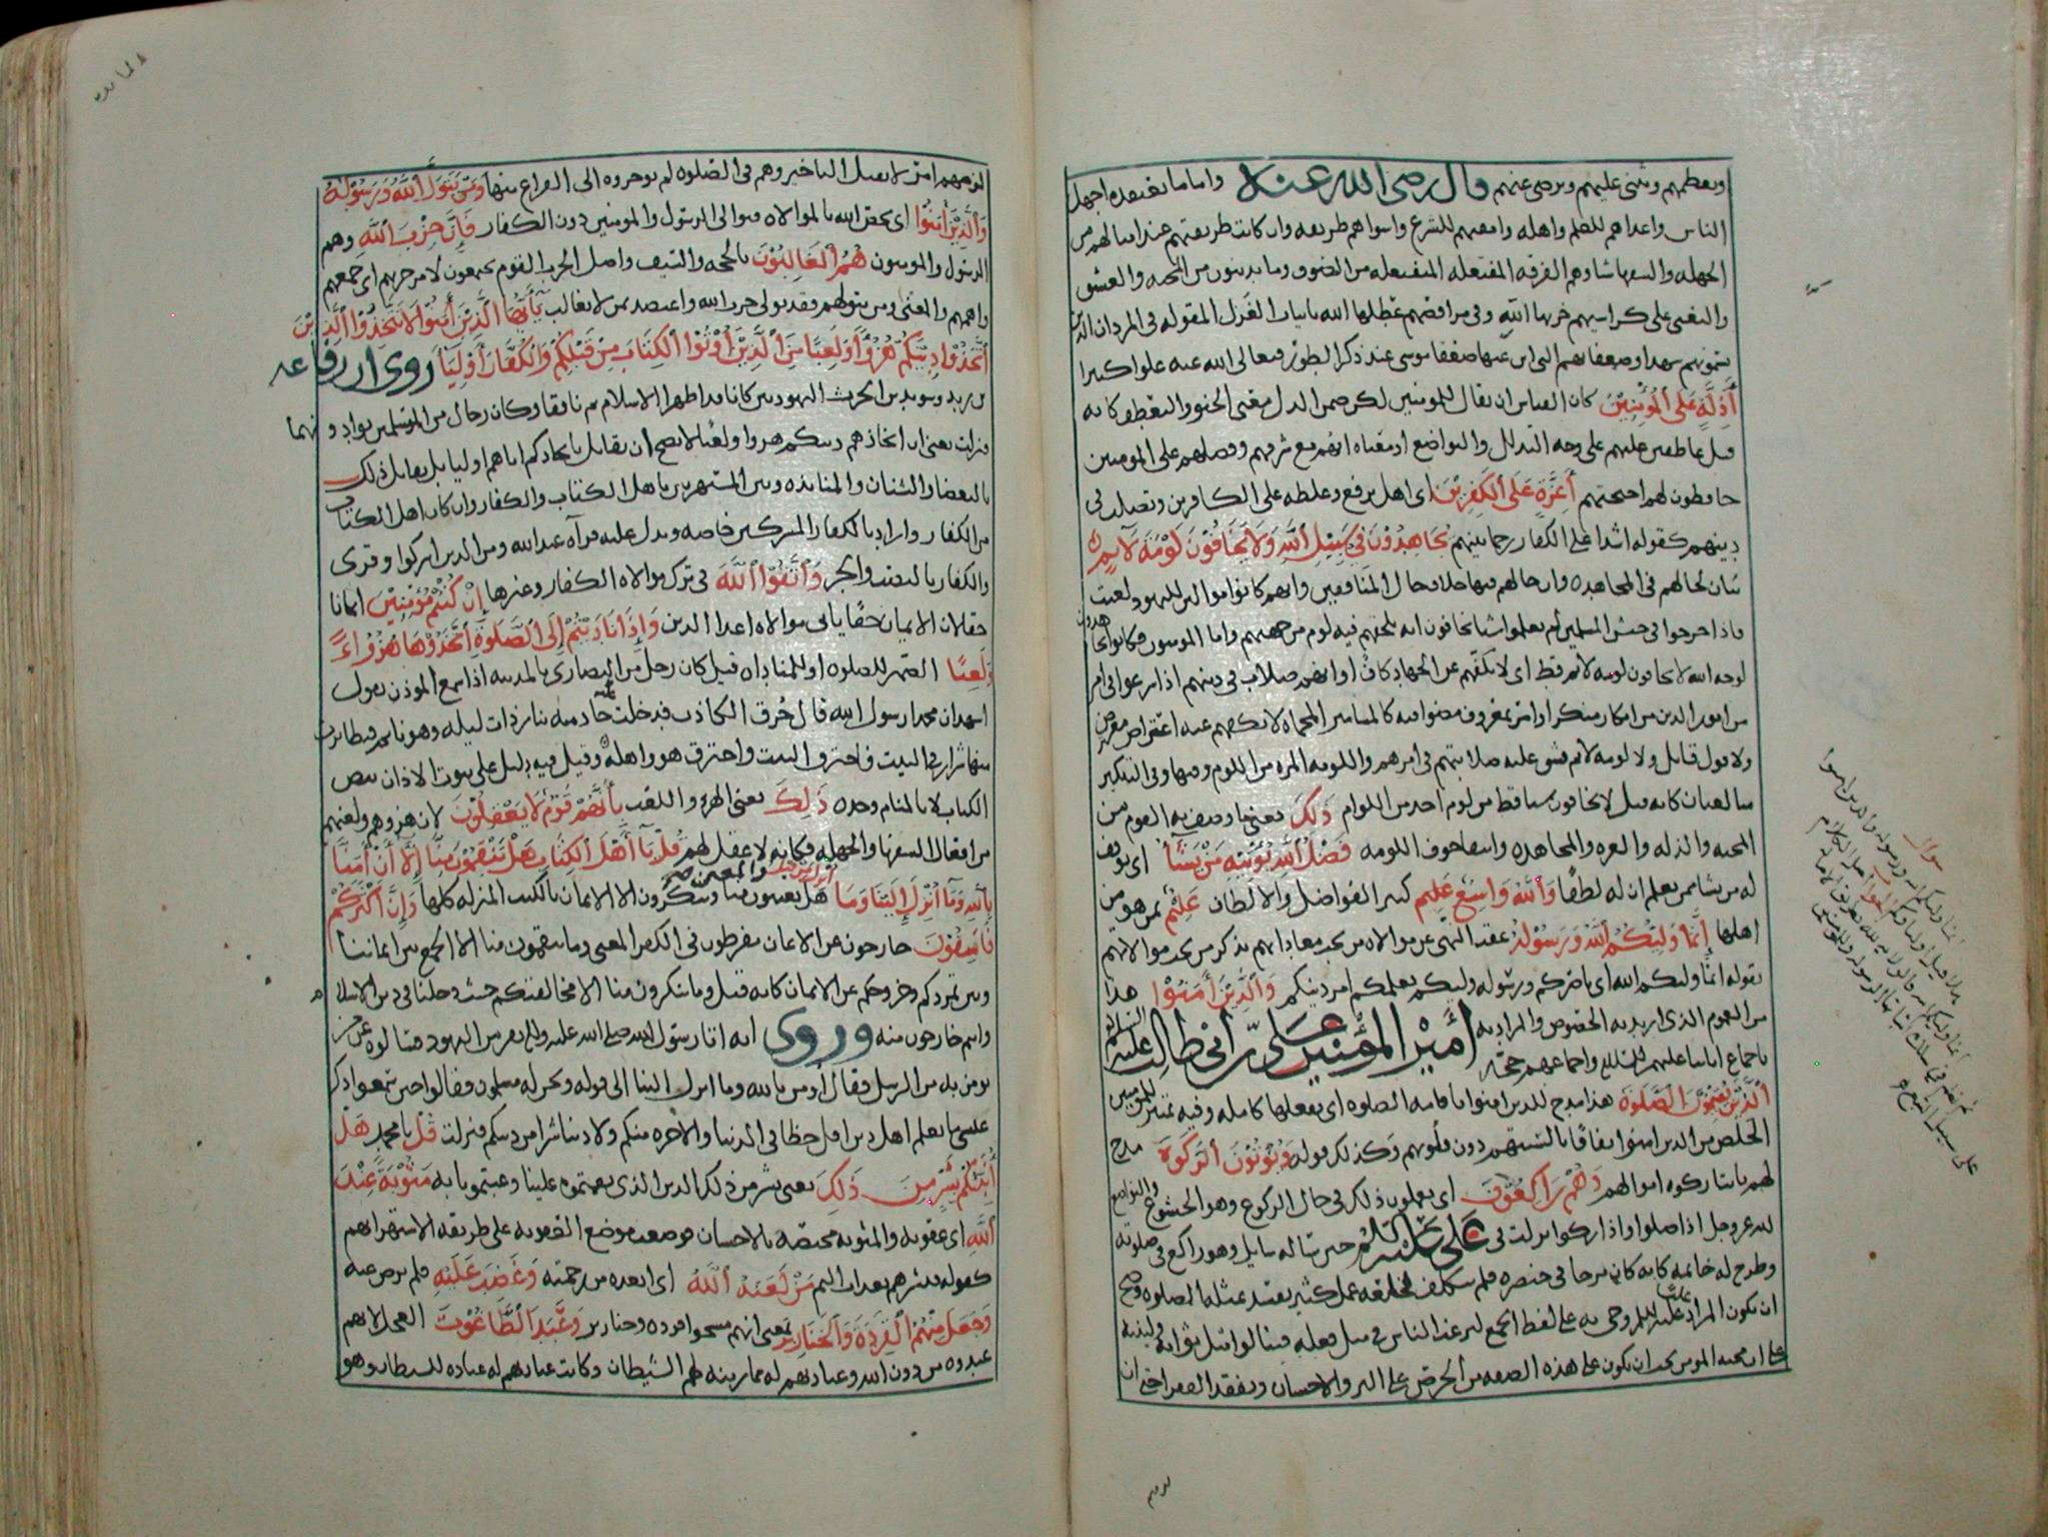 ويعظمهم ويثنى عليهم ويرضى عنهم قال رضى الله عنه واما ما يعتقده اجهل
الناس واعداهم للعلم واهله وامقتهم للشرع واسواهم طريقه وان كانت طريقتهم عند امثالهم من
الجهله والسفها شيا وهم الفرقه المفتعله المنفعله من الصوف وما يدينون من المحبه والعشق
والتغنى على كراسيهم خربها الله وفى مراقصهم عطلها الله بابيات الغزل المقوله فى المردان الذين
يسمونهم شهدا وصعقاتهم التى اين عنها صعقة موسى عند ذكر الطور فتعالى الله عنه علوا كبيرا
أذلة على المؤمنين كان القياس ان يقال للمومنين لكن ضمن الذل معنى الحنو والتعطف كانه
قيل عاطفين عليهم على وجه التذلل والتواضع او معناه انهم مع شرفهم وفضلهم على المومنين
خافظون لهم اجنحتهم أعزة على الكفرين اى اهل ترفع وغلظه على الكافرين وتصلب فى
دينهم كقوله اشدا على الكفار رحما بينهم يجاهدون فى سبيل الله ولا يخافون لومة لايم
بيان لحالهم فى المجاهده وان حالهم فيها خلاف حال المنافقين وانهم كانوا موالين لليهود لعنت
فاذا خرجوا فى جيش المسلمين لم يعملوا شيا يخافون انه يلحقهم فيه لوم من جهتهم واما المومنون فكانوا يجاهدون
لوجه الله لا يخافون لومه لائم قط اى لا يكفهم عن الجهاد كاف او انهم صلاب فى دينهم اذا شرعوا فى امر
من امور الدين من انكار منكر او امر بمعروف مضوا فيه كالمسامير المحماه لا يكفهم عنه اعتراض معترض
ولا قول قايل ولا لومه لائم يشق عليه صلابتهم فى امرهم واللومه المره من اللوم وفيها وفى التنكير
مبالغتان كانه قيل لا يخافون شيا قط من لوم احد من اللوام ذلك يعنى ما وصف به القوم من
المحبه والذله والعزه والمجاهده وانتفا خوف اللومه فضل الله يؤتيه من يشآ اى يوفق
له من يشا ممن يعلم ان له لطفا والله واسع عليم كثير الفواضل والالطاف عليم بمن هو من
اهلها إنما وليكم الله ورسوله عقب النهى عن موالاه من يجب معاداتهم بذكر من يجب موالاتهم
بقوله انما وليكم الله اى ناصركم ورسوله وليكم يعلمكم امر دينكم والذين آمنوا هذا
من العموم الذى اريد به الخصوص والمراد به أمير المؤمنين على بن أبى طالب عليه السلام
باجماع ابائنا عليهم السلام واجماعهم حجه
الذين يقيمون الصلوة هذا مدح للذين امنوا باقامه الصلوه اى يفعلها كامله وفيه تمييز للمومنين
الخلص من الذين امنوا نفاقا بالسنتهم دون قلوبهم وكذلك قوله ويؤتون الزكوة مدح
لهم بايتا زكوه اموالهم وهم راكعون اى يعملون ذلك فى حال الركوع وهو الخشوع والتواضع
لله عز وجل اذا صلوا واذا زكوا نزلت فى على عليه السلام حين ساله سايل وهو راكع فى صلوته
وطرح له خاتمه كانه كان مرجا فى خنصره فلم يتكلف لخلعه عمل كثير يفسد بمثله الصلوه وصح
ان يكون المراد على عليه السلم وجى به على لفظ الجمع ليرغب الناس فى مثل فعله فينالوا مثل ثوابه ولينبه
على ان سجيه المومن يجب ان يكون على هذه الصفه من الحرص على البر والاحسان وتفقد الفقرا حتى ان
سوال
لزهم
لزمهم امر لا يقبل التاخير وهم فى الصلوه لم يوخروه الى الفراغ منها ومن يتول الله ورسوله
والذين آمنوا اى يخص الله بالموالاه ويوالى الرسول والمومنين دون الكفار فإن حزب الله وهم
الرسول والمومنون هم الغالبون بالحجه والسيف واصل الحزب القوم يجتمعون لامر حزبهم اى جمعهم
واهمهم والمعنى ومن يتولهم فقد تولى حزب الله واعتضد بمن لا يغالب يآأيها الذين آمنوا لا تتخذوا الذين
اتخذوا دينكم هزوا ولعبا من الذين أوتوا الكتاب من قبلكم والكفار أوليآ روى ان رفاعه
بن زيد وسويد بن الحرث اليهوديين كانا قد اظهرا الاسلام ثم نافقا وكان رجال من المسلمين يوادونهما
فنزلت يعنى ان اتخاذهم دينكم هزوا ولعبا لا يصح ان يقابل باتخاذكم اياهم اوليا بل يقابل ذلك
بالبغضا والشنان والمنابذه وبين المستهزين باهل الكتاب والكفار وان كان اهل الكتاب
من الكفار واراد بالكفار المشركين خاصه ويدل عليه قرآه عبد الله ومن الذين اشركوا وقرى
والكفار بالنصب والجر واتقوا الله فى ترك موالاه الكفار وغيرها إن كنتم مؤمنين ايمانا
حقا لان الايمان حقا يابى موالاه اعدا الدين وإذا ناديتم إلى الصلوة اتخذوها هزوا
ولعبا الضمير للصلوه او للمناداه قيل كان رجل من النصارى بالمدينه اذا سمع الموذن يقول
اشهد ان محمدا رسول الله قال حرق الكاذب فدخلت خادمه بنار ذات ليله وهو نايم فتطايرت
منها شرار فى البيت فاحترق البيت واحترق هو واهله وقيل فيه دليل على ثبوت الاذان بنص
الكتاب لا بالمنام وحده ذلك يعنى الهزؤ واللعب بأنهم قوم لا يعقلون لان هزوهم ولعبهم
من افعال السفها والجهله فكانه لا عقل لهم قل يآأهل الكتاب هل تنقمون منا إلا أن آمنا
بالله ومآ أنزل إلينا ومآ أنزل من قبل هل تعيبون منا وتنكرون الا الايمان بالكتب المنزله كلها وأن أكثركم
فاسقون خارجون عن الايمان مفرطون فى الكفر المعنى وما تنقمون منا الا الجمع بين ايماننا
وبين تمردكم وخروجكم عن الايمان كانه قيل وما تنكرون منا الا مخالفتكم حيث دخلنا فى دين الاسلام
وانتم خارجون منه وروى انه اتا رسول الله صلى الله عليه وآله نفر من اليهود فسالوه عن من
يومن به من الرسل فقال اومن بالله وما انزل الينا الى قوله ونحن له مسلمون فقالوا حين سمعوا ذكر
عيسى ما نعلم اهل دين اقل حظا فى الدنيا والاخره منكم ولا دينا شرا من دينكم فنزلت قل يا محمد هل
أنبئكم بشر من ذلك يعنى بشر من ذلك الدين الذى نقمتموه علينا وعبتمونا به مثوبة عند
الله اى عقوبه والمثوبه مختصه بالاحسان فوضعت موضع العقوبه على طريقه الاستهزا بهم
كقوله فبشرهم بعذاب اليم من لعنه الله اى ابعده من رحمته وغضب عليه فلم يرض عنه
وجعل منهم القردة والخنازير يعنى انهم مسخوا قرده وخنازير وعبد الطاغوت العجل لانهم
عبدوه من دون الله وعبادتهم له مما زينه لهم الشيطان وكانت عبادتهم له عباده للشيطان وهو